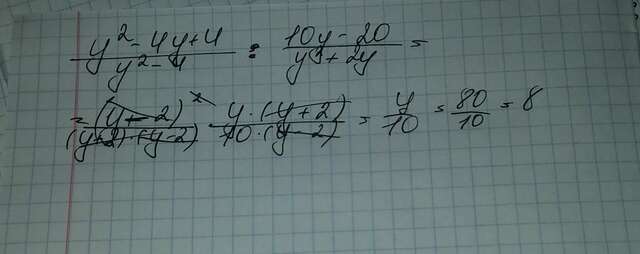 y² - 4y + 4 / y² - 4 : 10y - 20 / y² + 2y =
= (y - 2)² / (y + 2) · (y - 2) · y · (y + 2) / 10 · (y - 2) = y / 10 = 80 / 10 = 8